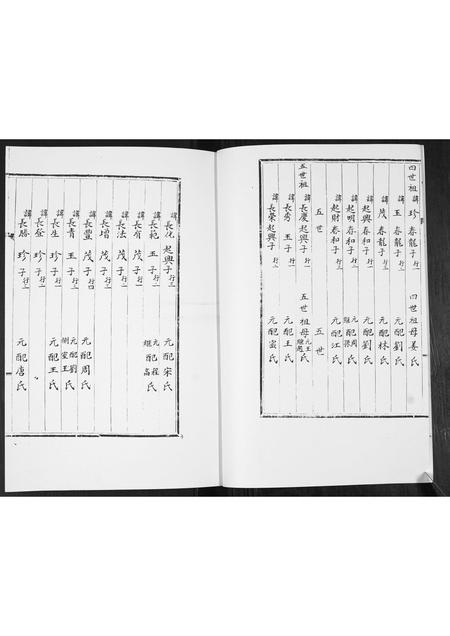 四世祖 諱珍 春龍子 行一 四世祖母姜氏
諱玉 春龍子 行二 元配劉氏
諱茂 春龍子 行三 元配林氏
諱起興 春和子 行一 元配劉氏
諱起明 春和子 行二 元配周氏 繼配梁氏
諱起財 春和子 行三 元配江氏
五世 五世
五世祖 諱長慶 起興子 行一 五世祖母 元王 繼趙氏
諱長秀 玉子 行一 元配王氏
諱長榮 起興子 行二 元配蛮氏
諱長花 起興子 行三 元配宋氏
諱長範 玉子 行二 元配程氏 繼配高氏
諱長有 茂子 行一
諱長法 茂子 行二
諱長增 茂子 行三
諱長豐 茂子 行四 元配周氏
諱長青 玉子 行三 元配劉氏 側室王氏
諱長生 珍子 行一 元配王氏
諱長奎 珍子 行二
諱長勝 珍子 行三 元配唐氏